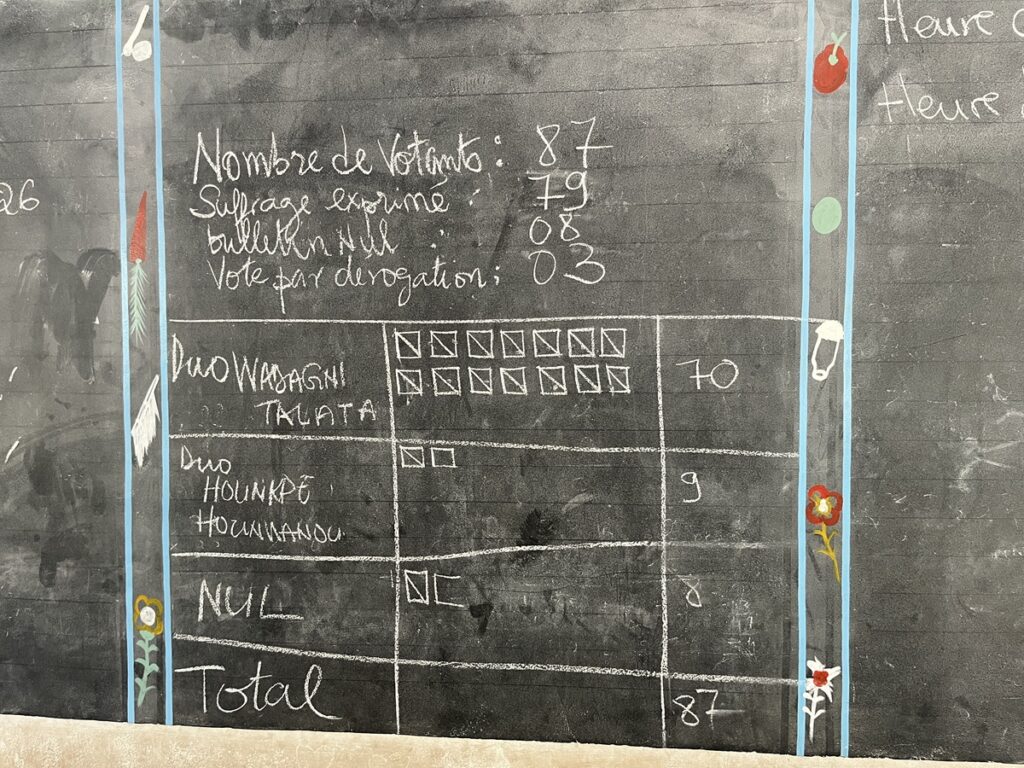 26
Heure
Heure
Nombre de Votants : 87
Suffrage exprimé : 79
bulletin Nul : 08
Vote par derogation : 03
Duo WADAGNI
TALATA
70
Duo
HOUNKPE
HOUNWANOU
9
NUL
8
Total
87